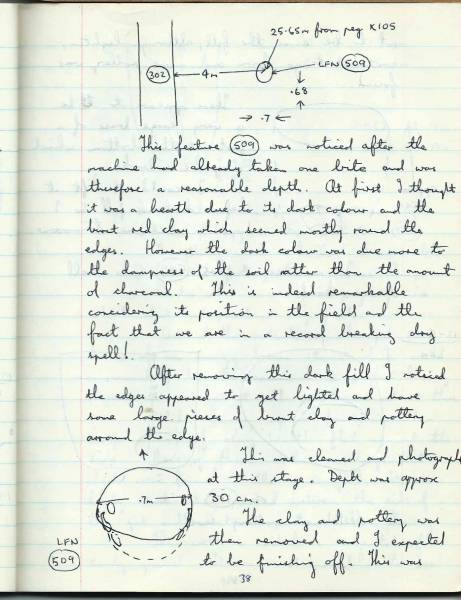 25.65m from peg K105
202
4m
LFN 509
.68
.7
This feature 509 was noticed after the
machine had already taken one bite and was
therefore a reasonable depth. At first I thought
it was a hearth due to its dark colour and the
burnt red clay which seemed mostly round the
edges. However the dark colour was due more to
the dampness of the soil rather than the amount
of charcoal. This is indeed remarkable
considering its position in the field and the
fact that we are in a record breaking dry
spell!
After removing this dark fill I noticed
the edges appeared to get lighter and have
some large pieces of burnt clay and pottery
around the edge.
This was cleaned and photograph
at this stage. Depth was approx
30 cm.
.7m
The clay and pottery was
then removed and I expected
to be finishing off. This was
LFN
509
38